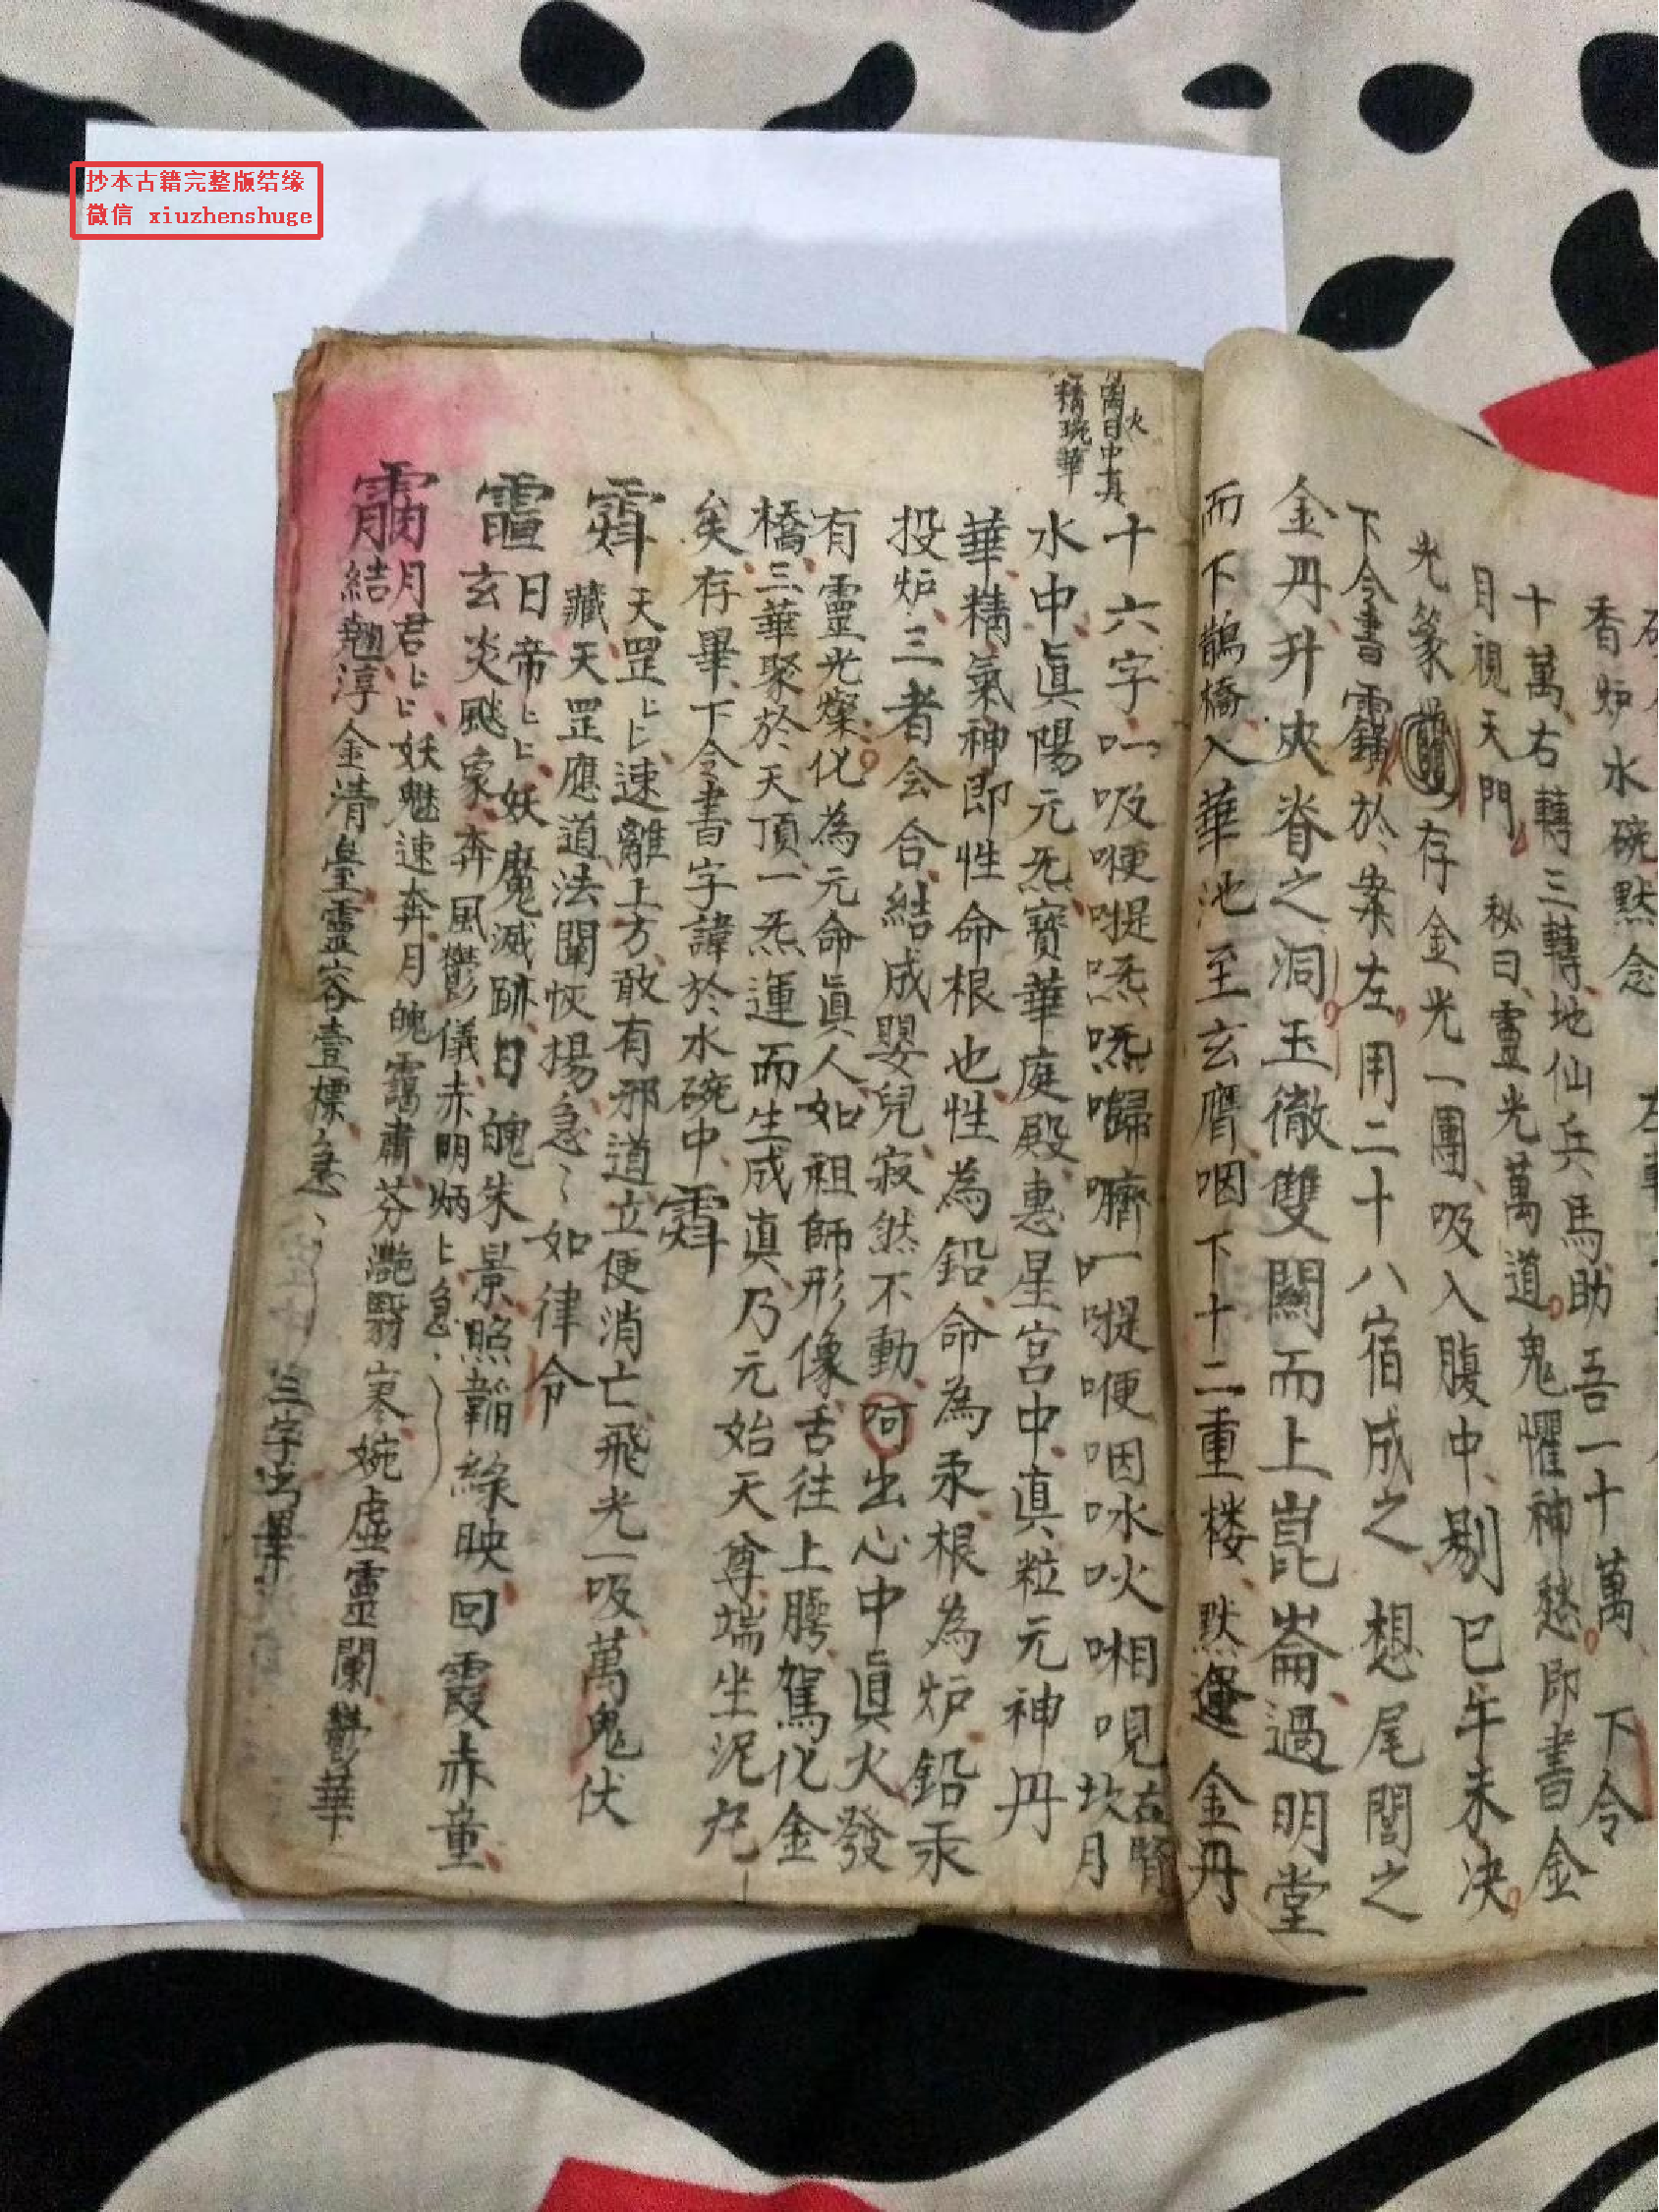 抄本古籍完整版结缘
微信 xiuzhenshuge
香炉水碗默念
十萬右轉三轉地仙兵馬助吾一十萬 下令
目視天門 秘曰靈光萬道鬼懼神愁即書金
光篆 存金光一團吸入腹中剔巳午未決
下令書 於案左用二十八宿成之 想尾閭之
金丹升夾脊之洞玉徹雙關而上崑崙過明堂
而下鵲橋入華池至玄膺咽下十二重楼默運金丹
火
离日中真
精琬華
十六字吖吸哽嗁炁嘕嚌吖嗁哽咽咏吙啪哯
右腎
坎月
水中真陽元炁寳華庭殿惠星宮中真粒元神丹
華精氣神即性命根也性為鉛命為汞根為炉鉛汞
投炉三者会合結成嬰兒寂然不動呵出心中真火發
有靈光燦化為元命真人如祖師形像舌往上腭駕化金
橋三華聚於天頂一炁運而生成真乃元始天尊端坐泥丸
矣存畢下令書字諱於水碗中
天罡上上速離上方敢有邪道立便消亡飛光一吸萬鬼伏
藏天罡應道法闡恢揚急々如律令
日帝上上妖魔滅跡日魄朱景照韜綠映回霞赤童
玄炎飈象奔風鬱儀赤明炳上急
月君上上妖魅速奔月魄靄肅芬灧翳寥婉虛靈蘭鬱華
結翹淳金清皇靈容臺標急々
三字書畢